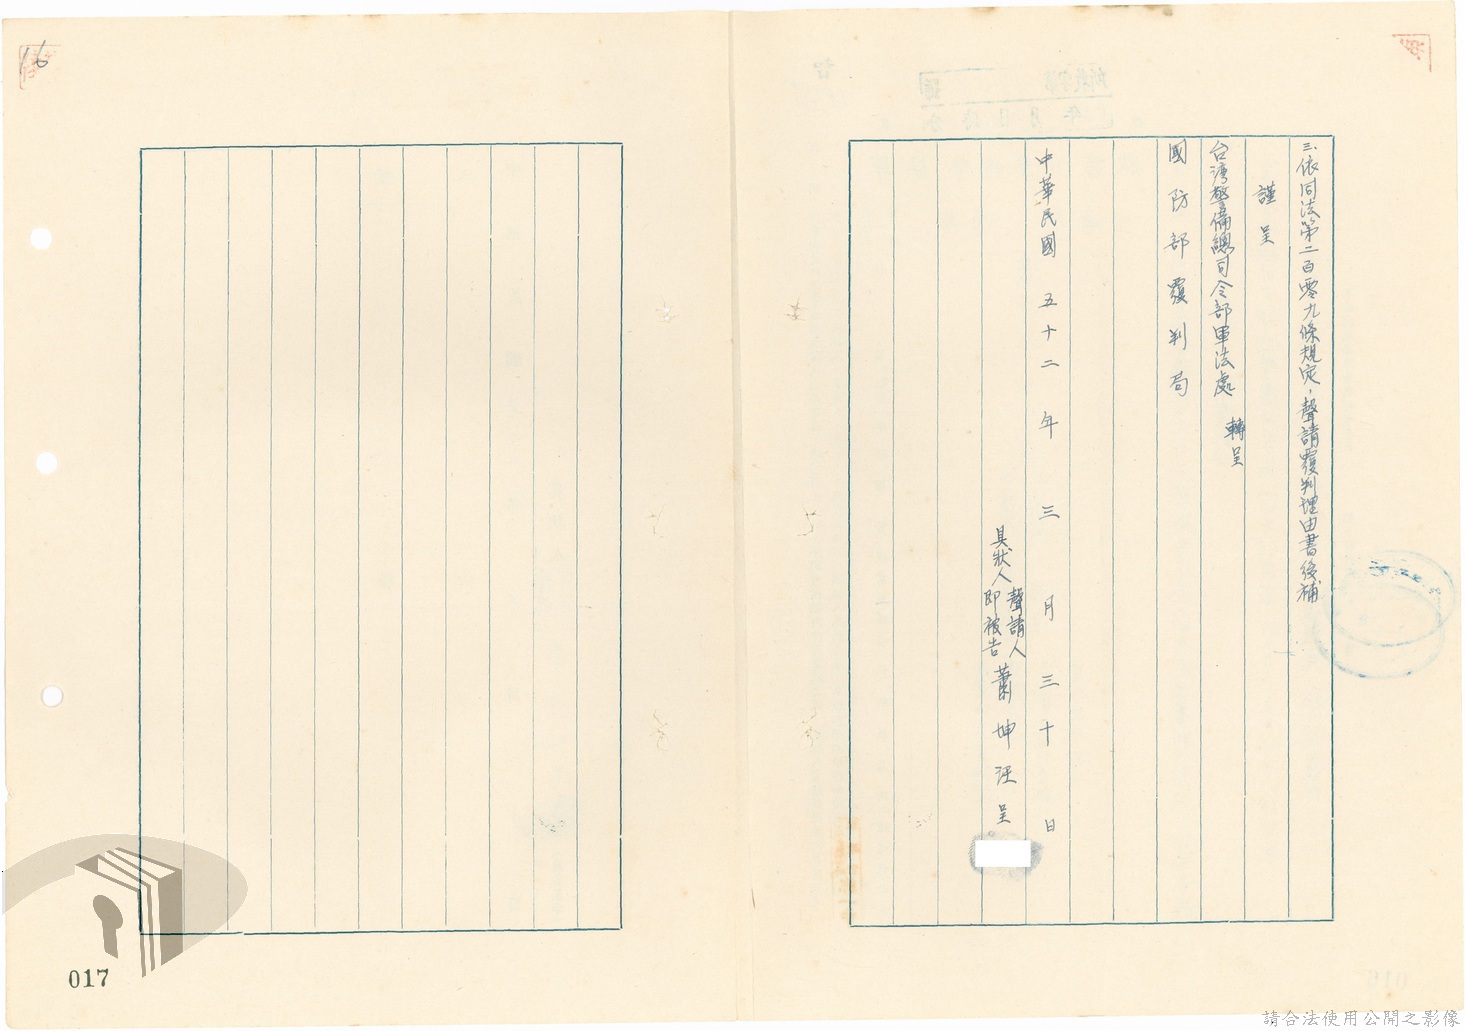 三、依同法第二百零九條規定，聲請覆判理由書後補
謹呈
台灣警備總司令部軍法處 轉呈
國防部覆判局
中華民國 五十二 年 三 月 三十 日
具狀人 聲請人 即被告 蕭坤汪 呈
16
017
請合法使用公開之影像